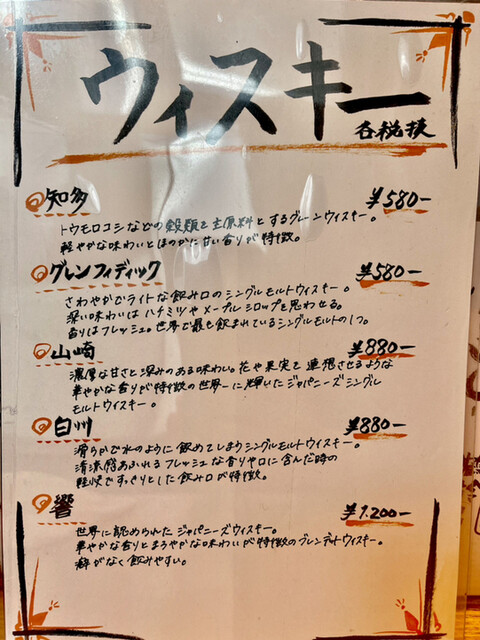 ウィスキー
各税抜
知多 ¥580-
トウモロコシなどの穀類を主原料とするグレーンウィスキー。
軽やかな味わいとほのかに甘い香りが特徴。
グレンフィディック ¥580-
さわやかでライトな飲み口のシングルモルトウイスキー。
深い味わいはハチミツやメープルシロップを思わせる。
香りはフレッシュ。世界で最も飲まれているシングルモルトの1つ。
山崎 ¥880-
濃厚な甘さと深みのある味わい。花や果実を連想させるような
華やかな香りが特徴の世界一に輝いたジャパニーズシングル
モルトウイスキー。
白州 ¥880-
滑らかで水のように飲めてしまうシングルモルトウイスキー。
清涼感あふれるフレッシュな香りや口に含んだ時の
軽快ですっきりとした飲み口が特徴。
響 ¥1.200-
世界に認められたジャパニーズウイスキー。
華やかな香りとまろやかな味わいが特徴のブレンデットウイスキー。
癖がなく飲みやすい。